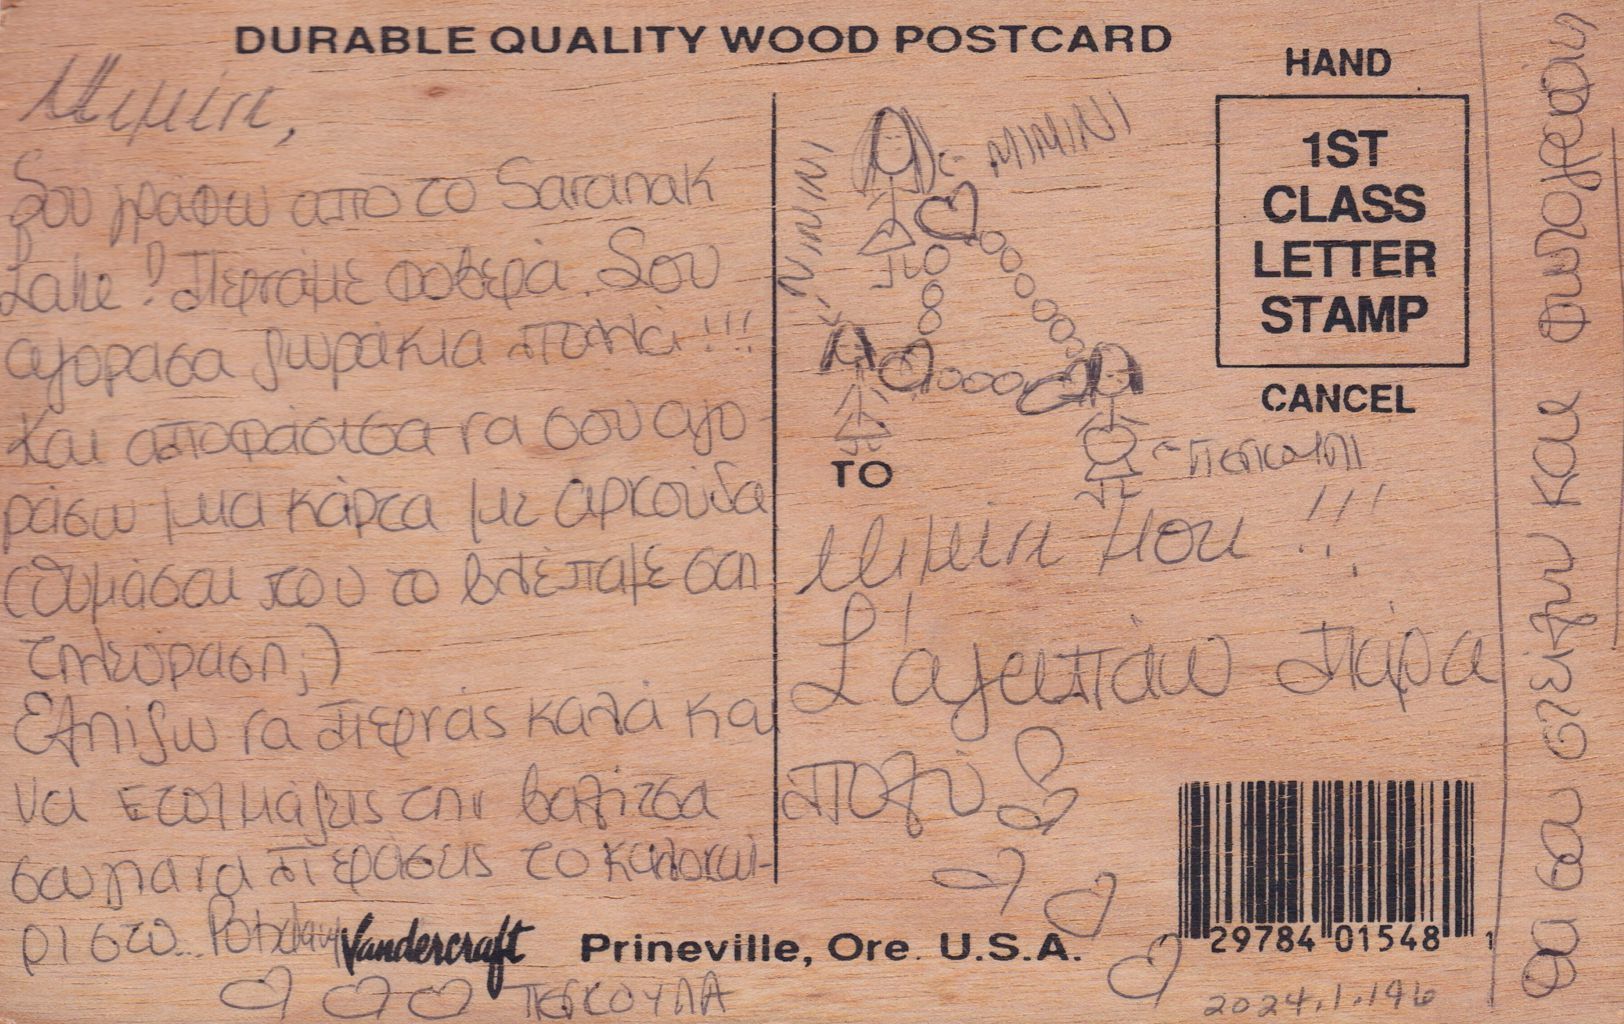 DURABLE QUALITY WOOD POSTCARD
Μιμίνι,
Σου γράφω από το Saranak
Lake! Περνάμε φοβερά. Σου
αγόρασα δωράκια πολλά!!!
Και αποφάσισα να σου αγο-
ράσω μια κάρτα με αρκούδα
(θυμάσαι που το βλέπαμε σαη
τηλεόραση;)
Ελπίζω να περνάς καλά και
να ετοιμάζεις την βαλίτσα
σου για να περάσεις το καλοκαί-
ρι στο... Potsdam
ΠΕΠΚΟΥΛΑ
Vandercraft Prineville, Ore. U.S.A.
NINIINI
MIMINI
HAND
1ST
CLASS
LETTER
STAMP
CANCEL
TO
Μιμίνι μου!!!
Σ'αγαπάω πάρα
πολύ
29784 01548 1
2024.1.196
θα σου στείλω και φωτογραφίες